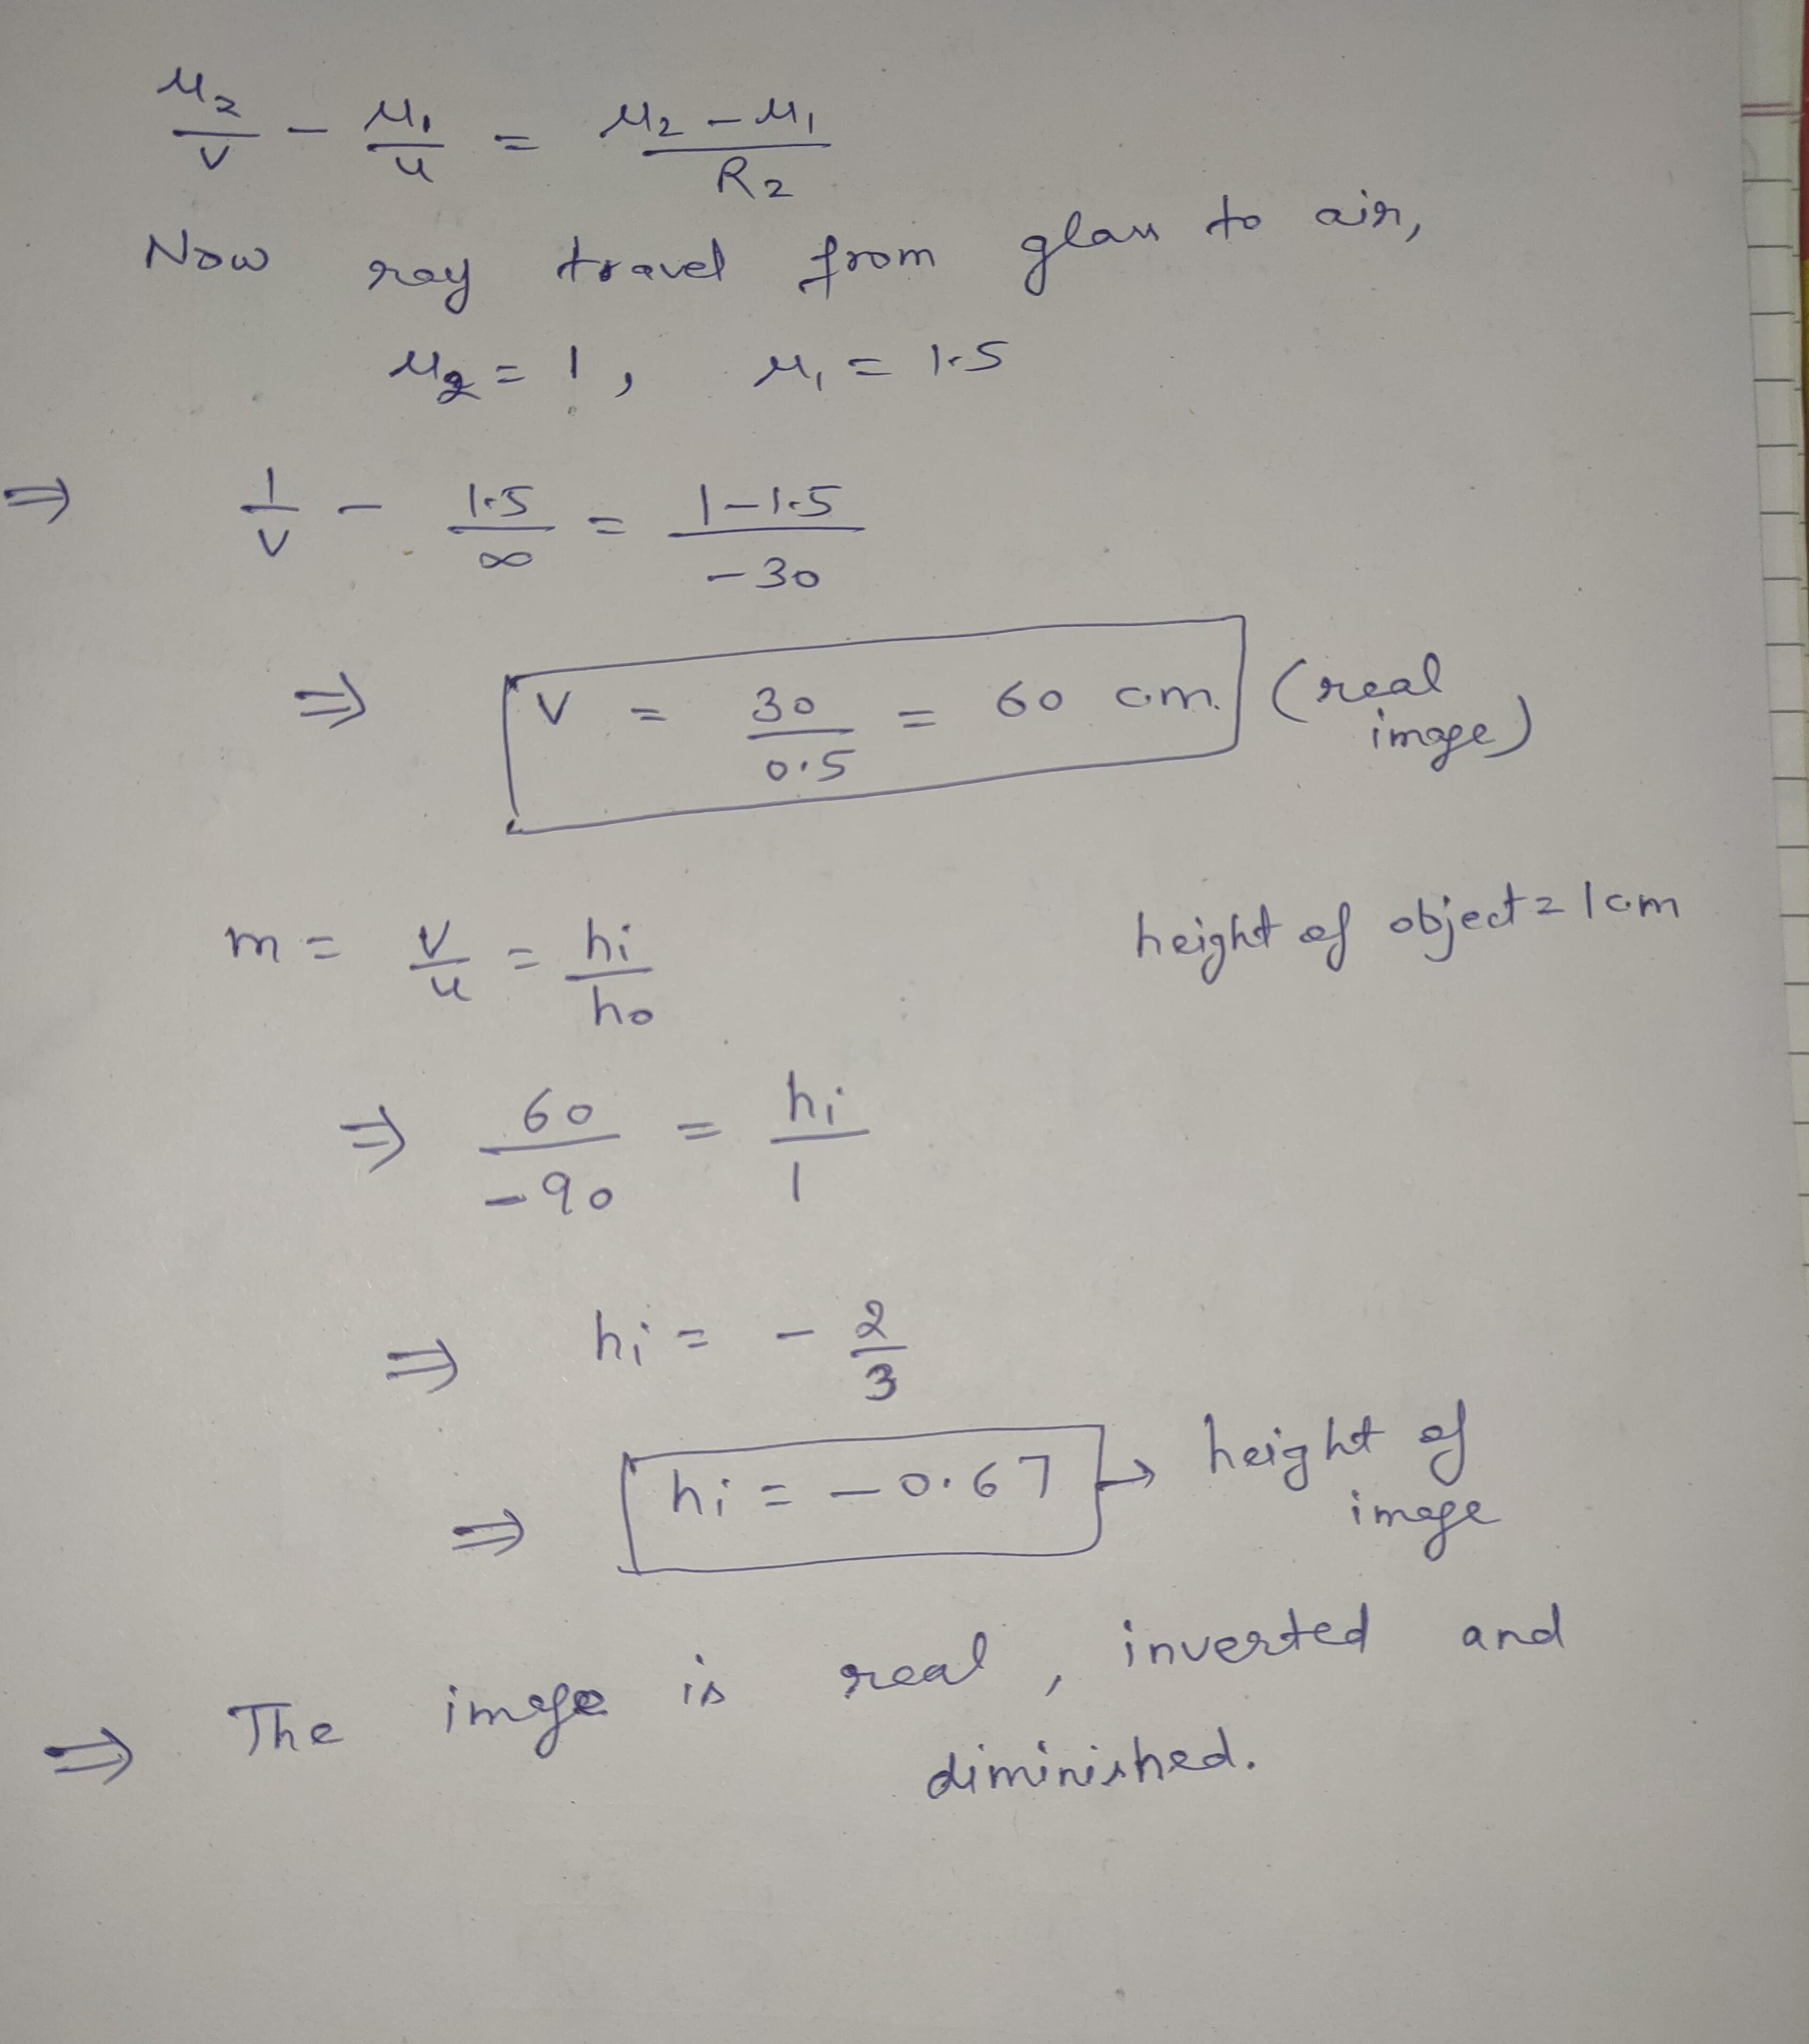 μ₂/v - μ₁/u = μ₂ - μ₁/R₂
Now ray travel from glass to air,
μ₂ = 1, μ₁ = 1.5
⇒ 1/v - 1.5/∞ = 1-1.5/-30
⇒ v = 30/0.5 = 60 cm. (real image)
m = v/u = hi/ho height of object = 1cm
⇒ 60/-90 = hi/1
⇒ hi = - 2/3
⇒ hi = - 0.67 → height of image
⇒ The image is real, inverted and
diminished.